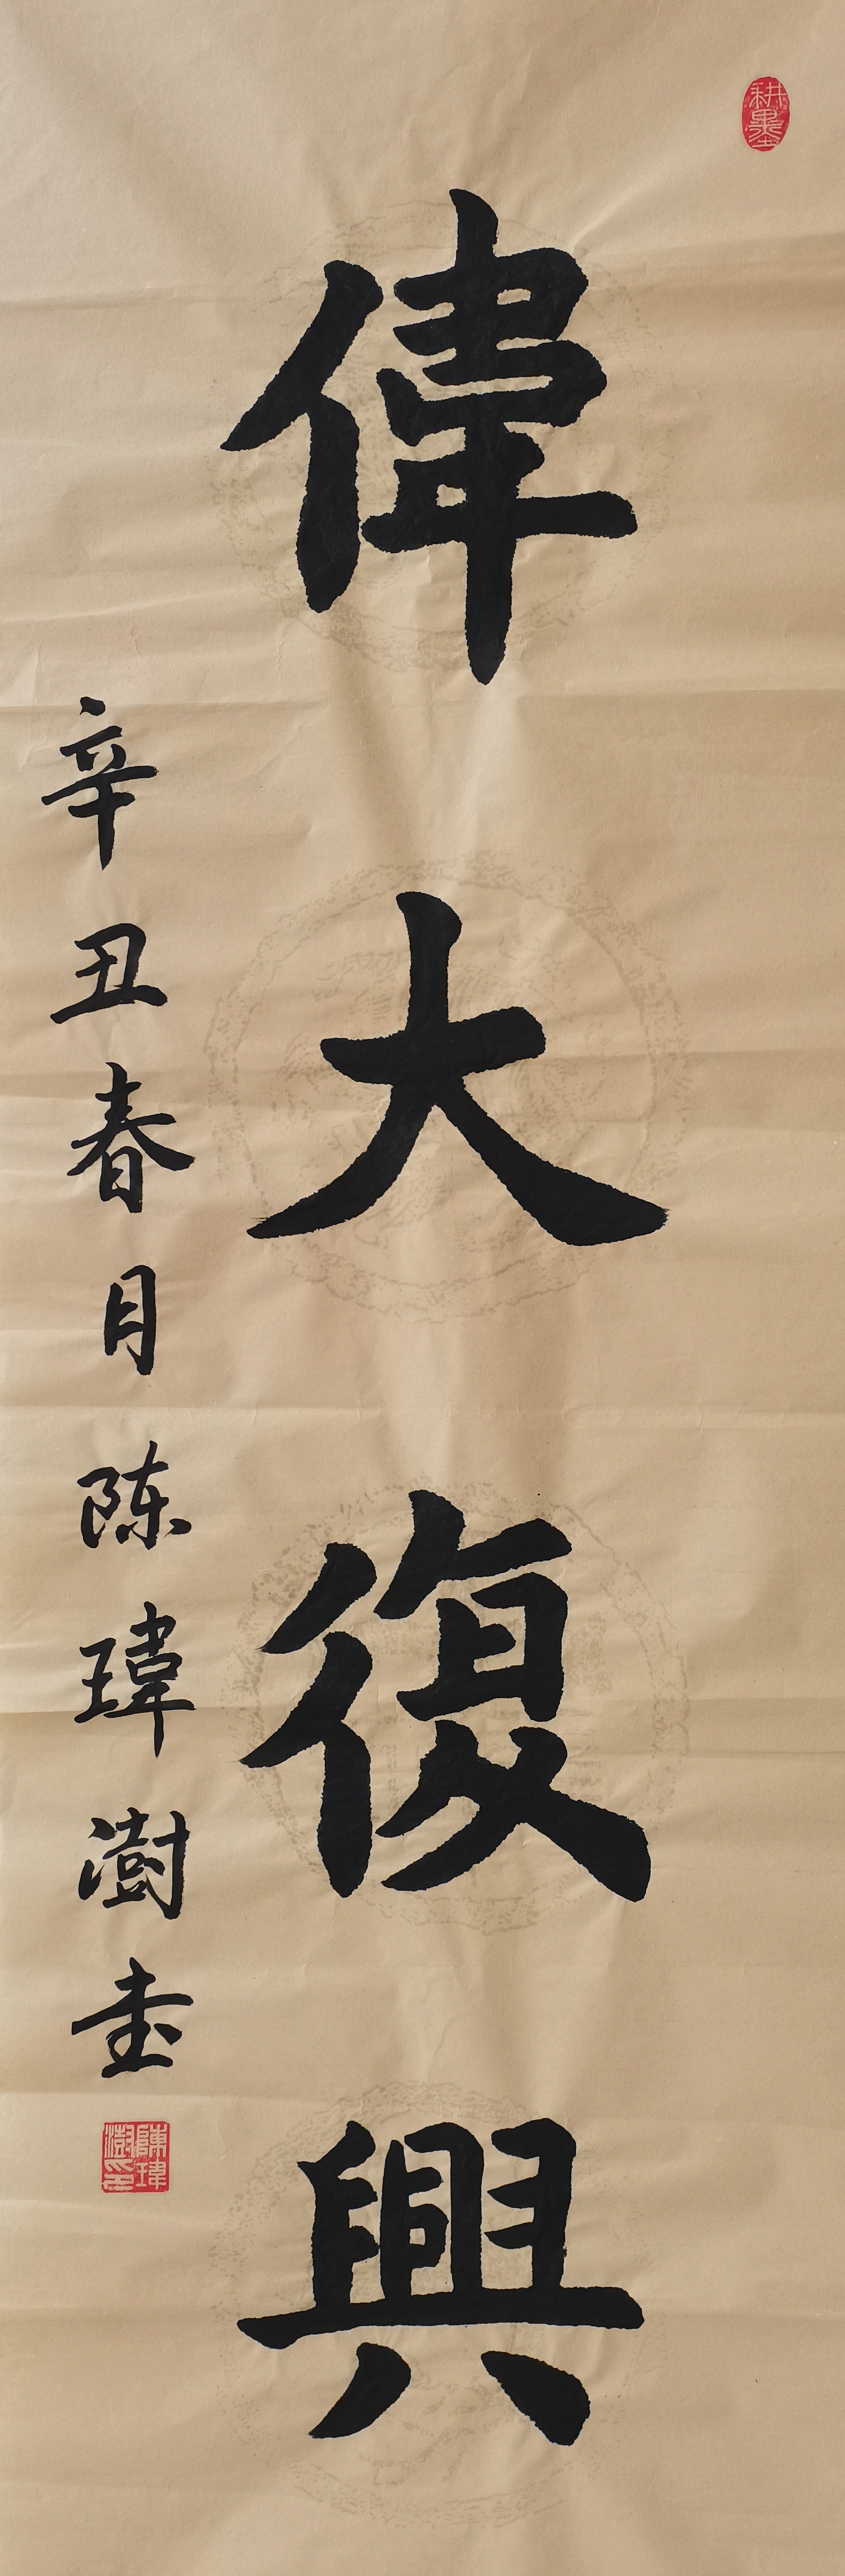 耕墨
偉大復興
辛丑春月陈瑋澍书
陳瑋澍印